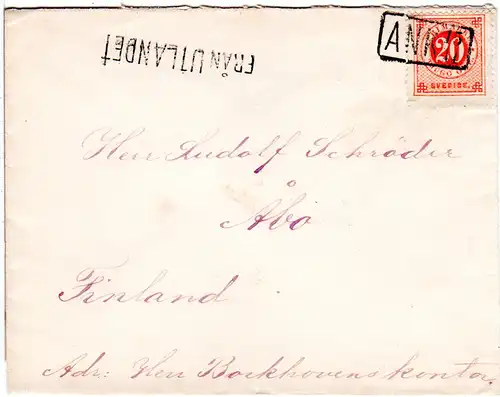 FRÅN UTLANDET
ANK
20
SVERIGE
Herr Rudolf Schröder
Åbo
Finland
Adr: Herr Bockhovens kontor.